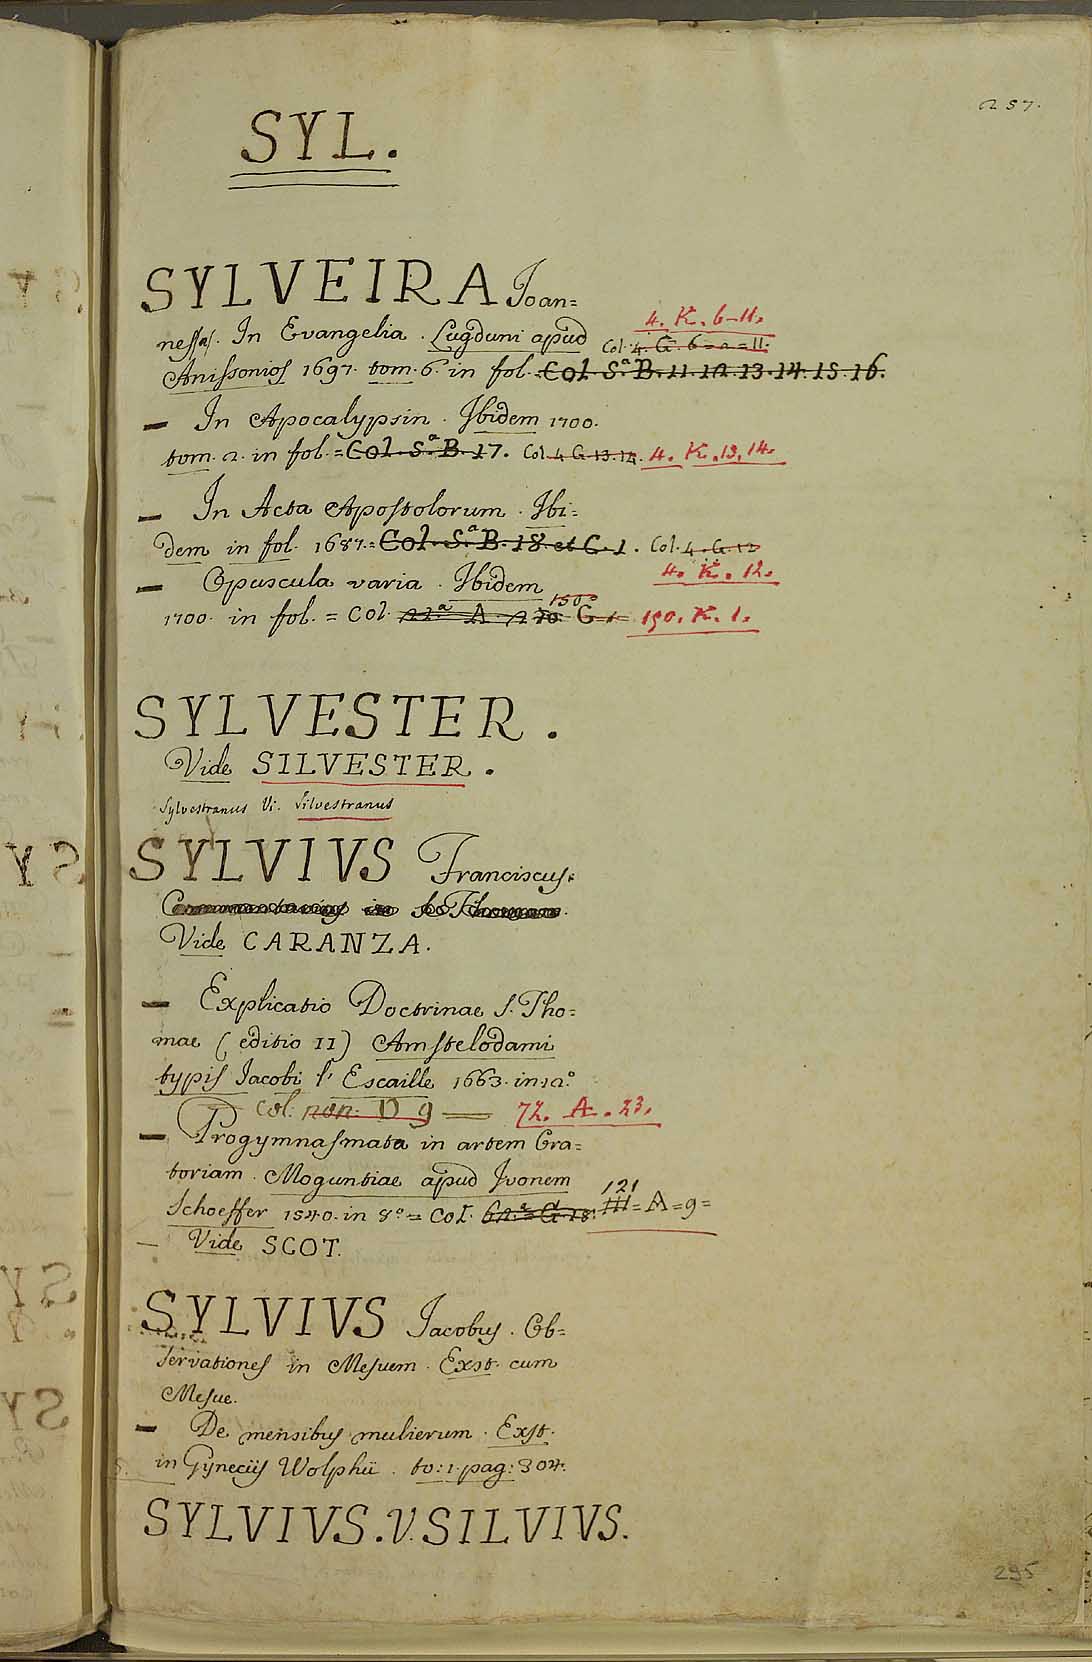 257.
SYL.
SYLVEIRA Joan=
nes. In Evangelia. Lugduni apud 4. K. 6-11.
Col. 4. G. 6=a=11.
Anissonios 1697. tom. 6. in fol. Col. S.ª B. 11. 12. 13. 14. 15. 16.
— In Apocalypsin. Ibidem 1700.
tom. 2. in fol. = Col. S.ª B. 17. Col 4 G. 13. 14. 4. K. 13. 14.
— In Acta Apostolorum. Ibi=
dem in fol. 1687. = Col. S.ª B. 18. et C. 1. Col. 4. G. 12
4. K. 12.
— Opuscula varia. Ibidem
1700. in fol. = Col. 22ª A 150. G 1 150. K. 1.
SYLVESTER.
Vide SILVESTER.
Sylvestranus Vi. Silvestranus
SYLVIVS Franciscus.
Commentarius in S. Thomam.
Vide CARANZA.
— Explicatio Doctrinae S. Tho=
mae (editio II) Amstelodami
typis Jacobi l' Escaille 1663. in 12.º
Col. D 9 — 72. A. 23.
— Progymnasmata in artem Ora=
toriam. Moguntiae apud Ivonem
Schoeffer 1540. in 8º = Col. 62.ª = G. 18. 121 III = A = 9 =
— Vide SCOT.
SYLVIVS Jacobus. Ob=
servationes in Mesuem. Exst. cum
Mesue.
— De mensibus mulierum. Exst.
in Gyneciis Wolphii. to: 1. pag: 304.
SYLVIVS. V. SILVIVS.
295